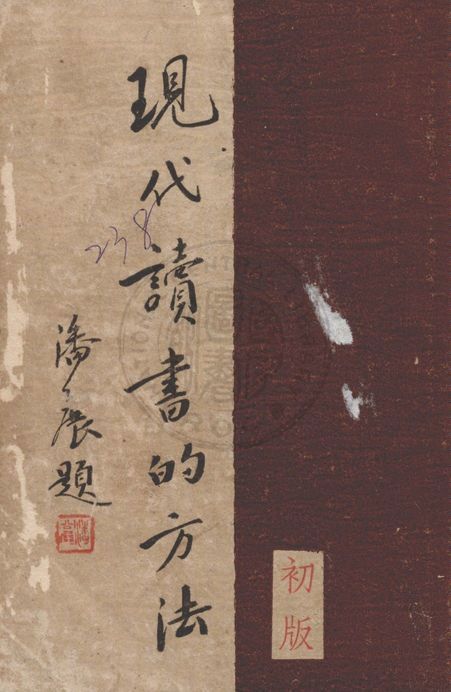 初版
現代讀書的方法
238
潘公展題